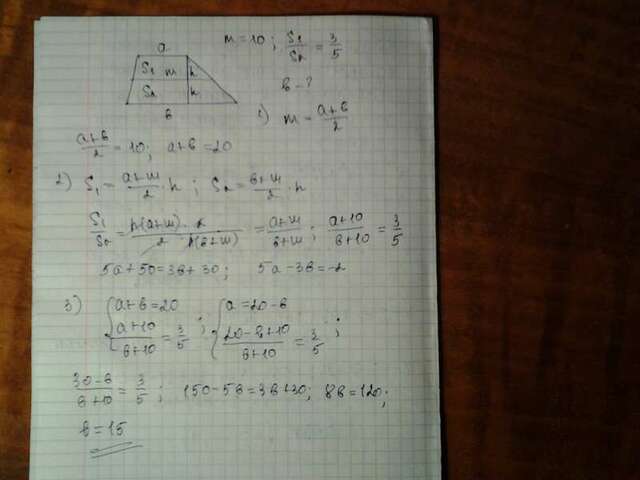 a
S₁ m h
S₂ h
в
m = 10 ; S₁/S₂ = 3/5
в - ?
1) m = (a+в)/2
(a+в)/2 = 10; a+в = 20
2) S₁ = (a+m)/2 · h ; S₂ = (в+m)/2 · h
S₁/S₂ = (h(a+m) · 2)/(2 · h(в+m)) = (a+m)/(в+m) ; (a+10)/(в+10) = 3/5
5a+50 = 3в+30; 5a-3в = -2
3) { a+в = 20 ; (a+10)/(в+10) = 3/5 ; { a = 20-в ; (20-в+10)/(в+10) = 3/5 ;
(30-в)/(в+10) = 3/5 ; 150-5в = 3в+30; 8в = 120;
в = 15